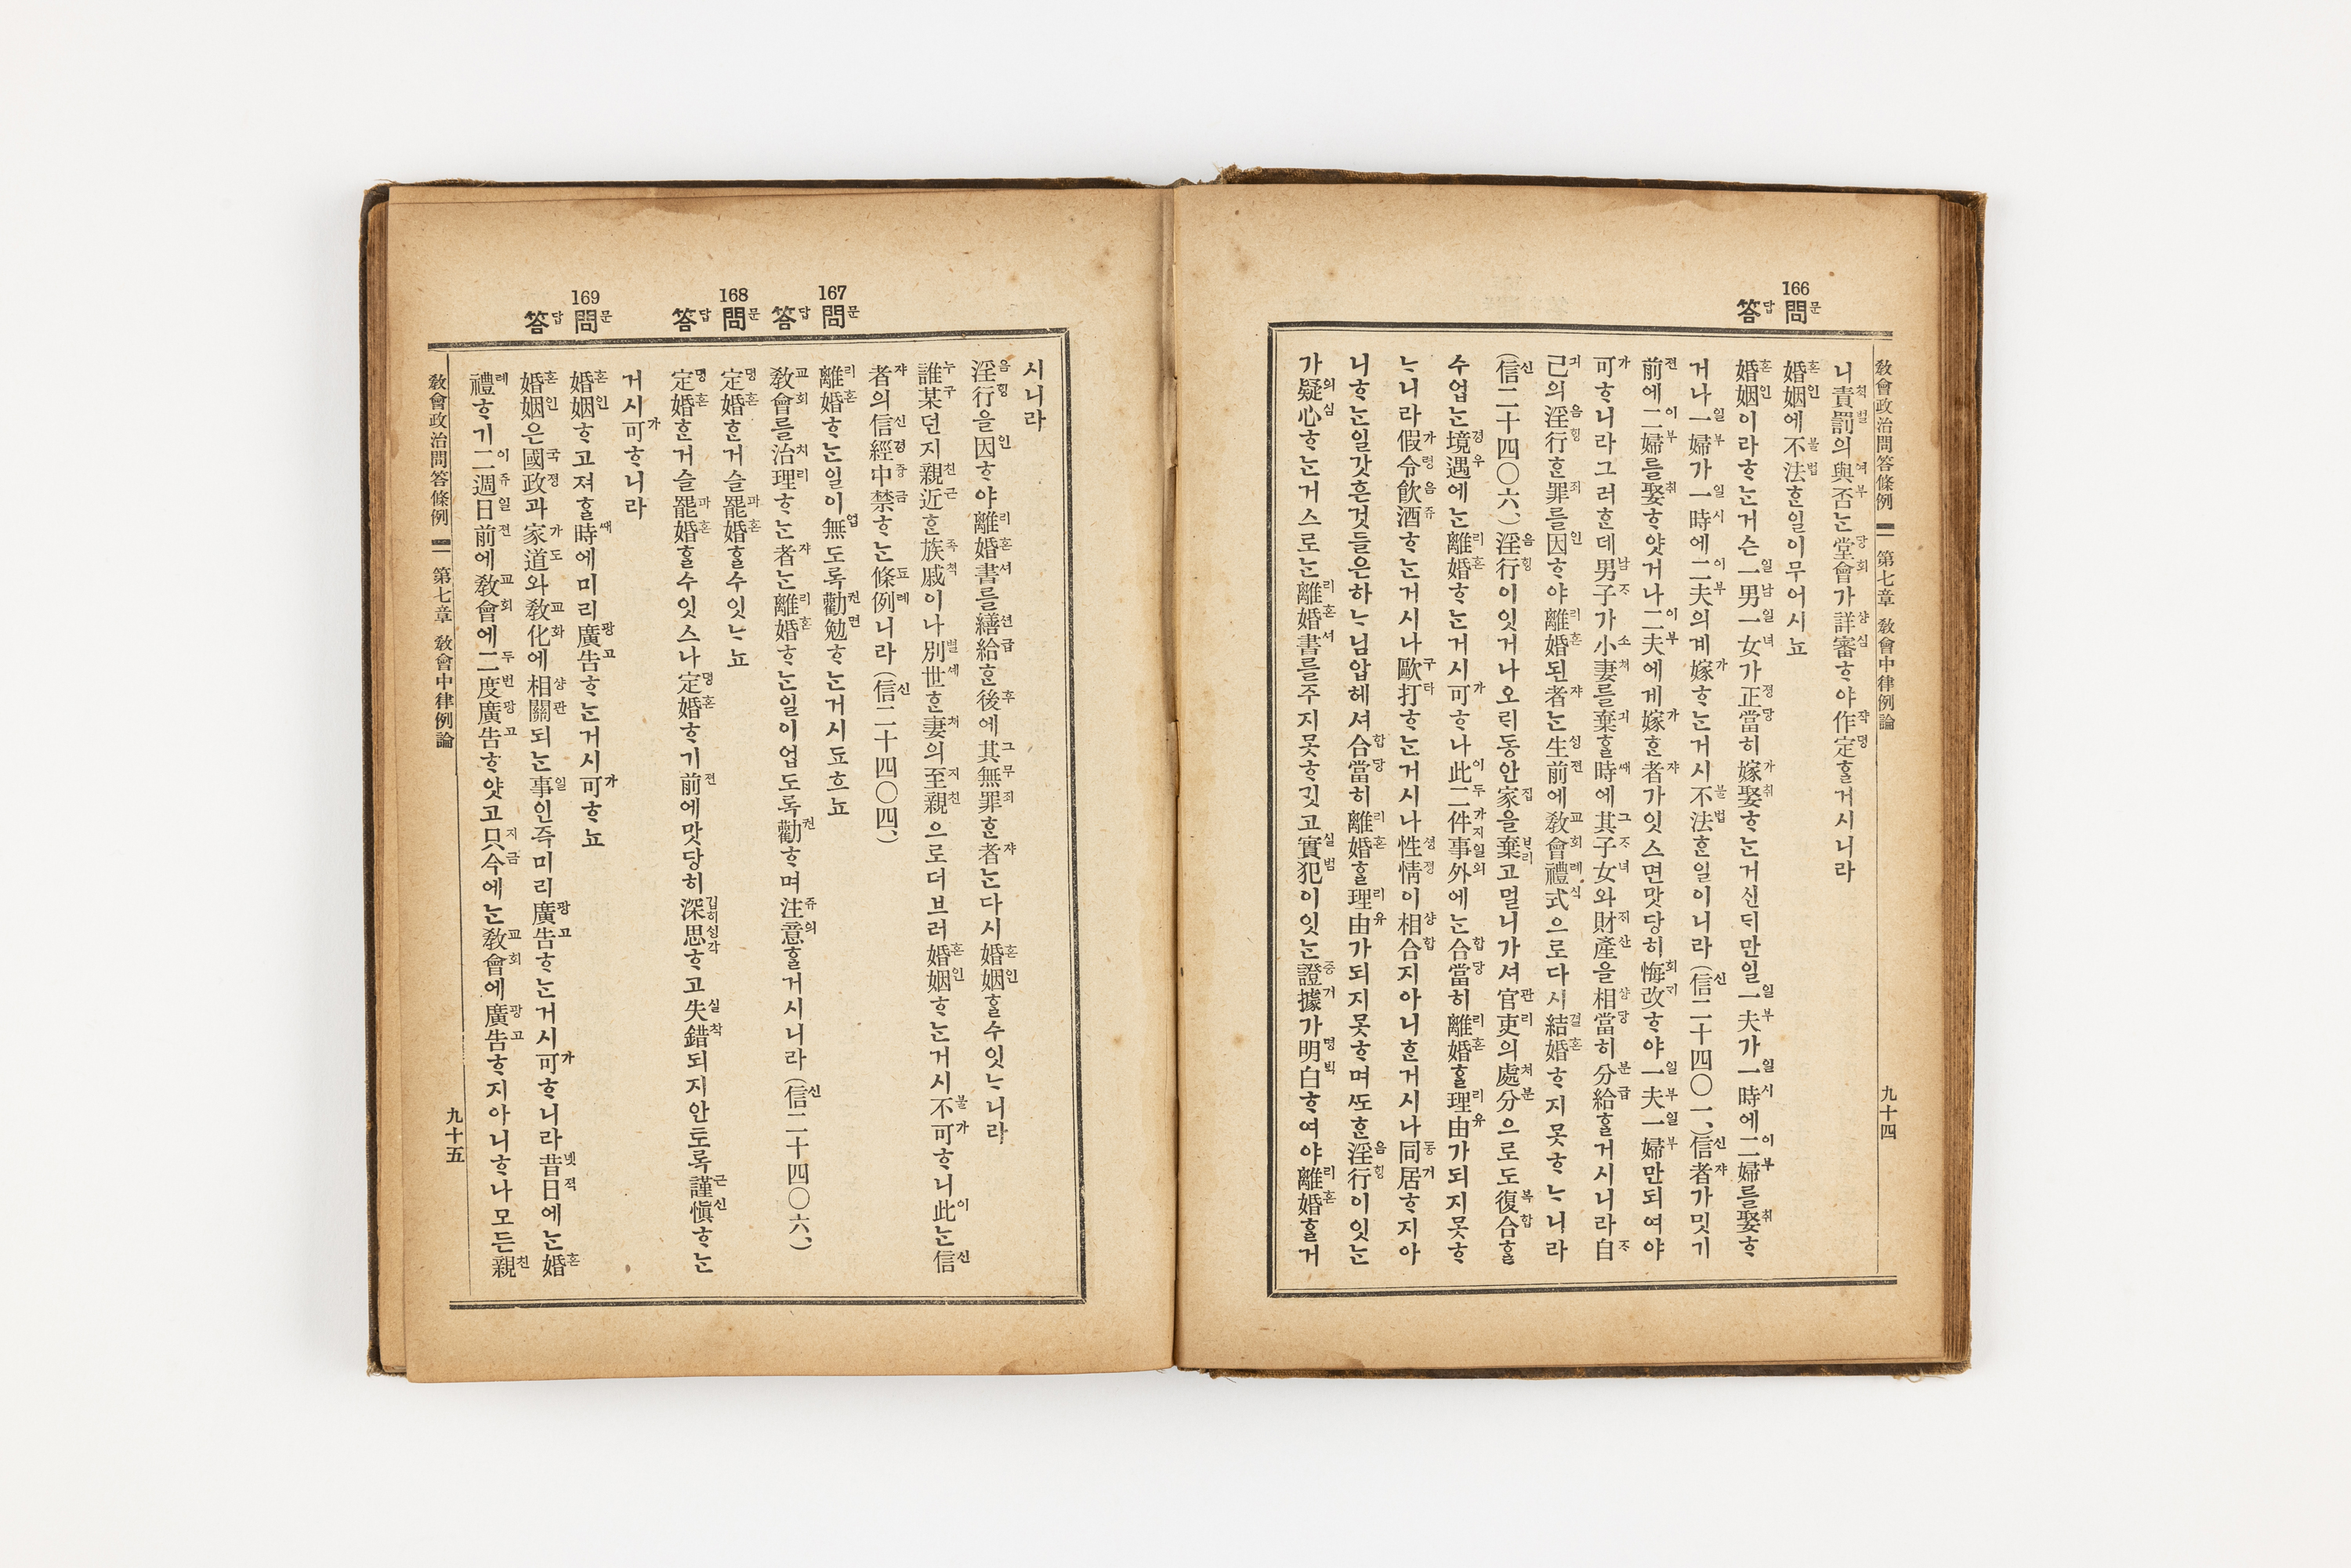 敎會政治問答條例 第七章 敎會中律例論 九十四
니責罰의與否ᄂᆞᆫ堂會가詳審ᄒᆞ야作定ᄒᆞᆯ거시니라
166 問 婚姻에不法ᄒᆞᆫ일이무어시뇨
答 婚姻이라ᄒᆞᄂᆞᆫ거슨一男一女가正當히嫁娶ᄒᆞᄂᆞᆫ거신ᄃᆡ만일一夫가一時에二婦를娶ᄒᆞ
거나一婦가一時에二夫의게嫁ᄒᆞᄂᆞᆫ거시不法ᄒᆞᆫ일이니라(信二十四〇一、)信者가밋기
前에二婦를娶ᄒᆞ얏거나二夫에게嫁ᄒᆞᆫ者가잇스면맛당히悔改ᄒᆞ야一夫一婦만되여야
可ᄒᆞ니라그러ᄒᆞᆫ데男子가小妻를棄ᄒᆞᆯ時에其子女와財產을相當히分給ᄒᆞᆯ거시니라自
己의淫行ᄒᆞᆫ罪를因ᄒᆞ야離婚된者ᄂᆞᆫ生前에敎會禮式으로다시結婚ᄒᆞ지못ᄒᆞᄂᆞ니라
(信二十四〇六、)淫行이잇거나오ᄅᆡ동안家을棄고멀니가셔官吏의處分으로도復合ᄒᆞᆯ
수업ᄂᆞᆫ境遇에ᄂᆞᆫ離婚ᄒᆞᄂᆞᆫ거시可ᄒᆞ나此二件事外에ᄂᆞᆫ合當히離婚ᄒᆞᆯ理由가되지못ᄒᆞ
ᄂᆞ니라假令飮酒ᄒᆞᄂᆞᆫ거시나歐打ᄒᆞᄂᆞᆫ거시나性情이相合지아니ᄒᆞᆫ거시나同居ᄒᆞ지아
니ᄒᆞᄂᆞᆫ일갓흔것들은하ᄂᆞ님압헤셔合當히離婚ᄒᆞᆯ理由가되지못ᄒᆞ며ᄯᅩᄒᆞᆫ淫行이잇ᄂᆞᆫ
가疑心ᄒᆞᄂᆞᆫ거스로ᄂᆞᆫ離婚書를주지못ᄒᆞ깃고實犯이잇ᄂᆞᆫ證據가明白ᄒᆞ여야離婚ᄒᆞᆯ거
시니라
淫行을因ᄒᆞ야離婚書를繕給ᄒᆞᆫ後에其無罪ᄒᆞᆫ者ᄂᆞᆫ다시婚姻ᄒᆞᆯ수잇ᄂᆞ니라
誰某던지親近ᄒᆞᆫ族戚이나別世ᄒᆞᆫ妻의至親으로더브러婚姻ᄒᆞᄂᆞᆫ거시不可ᄒᆞ니此ᄂᆞᆫ信
者의信經中禁ᄒᆞᄂᆞᆫ條例니라(信二十四〇四、)
167 問 離婚ᄒᆞᄂᆞᆫ일이無도록勸勉ᄒᆞᄂᆞᆫ거시됴흐뇨
答 敎會를治理ᄒᆞᄂᆞᆫ者ᄂᆞᆫ離婚ᄒᆞᄂᆞᆫ일이업도록勸ᄒᆞ며注意ᄒᆞᆯ거시니라(信二十四〇六、)
168 問 定婚ᄒᆞᆫ거슬罷婚ᄒᆞᆯ수잇ᄂᆞ뇨
答 定婚ᄒᆞᆫ거슬罷婚ᄒᆞᆯ수잇스나定婚ᄒᆞ기前에맛당히深思ᄒᆞ고失錯되지안토록謹愼ᄒᆞᄂᆞᆫ
거시可ᄒᆞ니라
169 問 婚姻ᄒᆞ고져ᄒᆞᆯ時에미리廣告ᄒᆞᄂᆞᆫ거시可ᄒᆞ뇨
答 婚姻은國政과家道와敎化에相關되ᄂᆞᆫ事인즉미리廣告ᄒᆞᄂᆞᆫ거시可ᄒᆞ니라昔日에ᄂᆞᆫ婚
禮ᄒᆞ기二週日前에敎會에二度廣告ᄒᆞ얏고只今에ᄂᆞᆫ敎會에廣告ᄒᆞ지아니ᄒᆞ나모든親
敎會政治問答條例 第七章 敎會中律例論 九十五